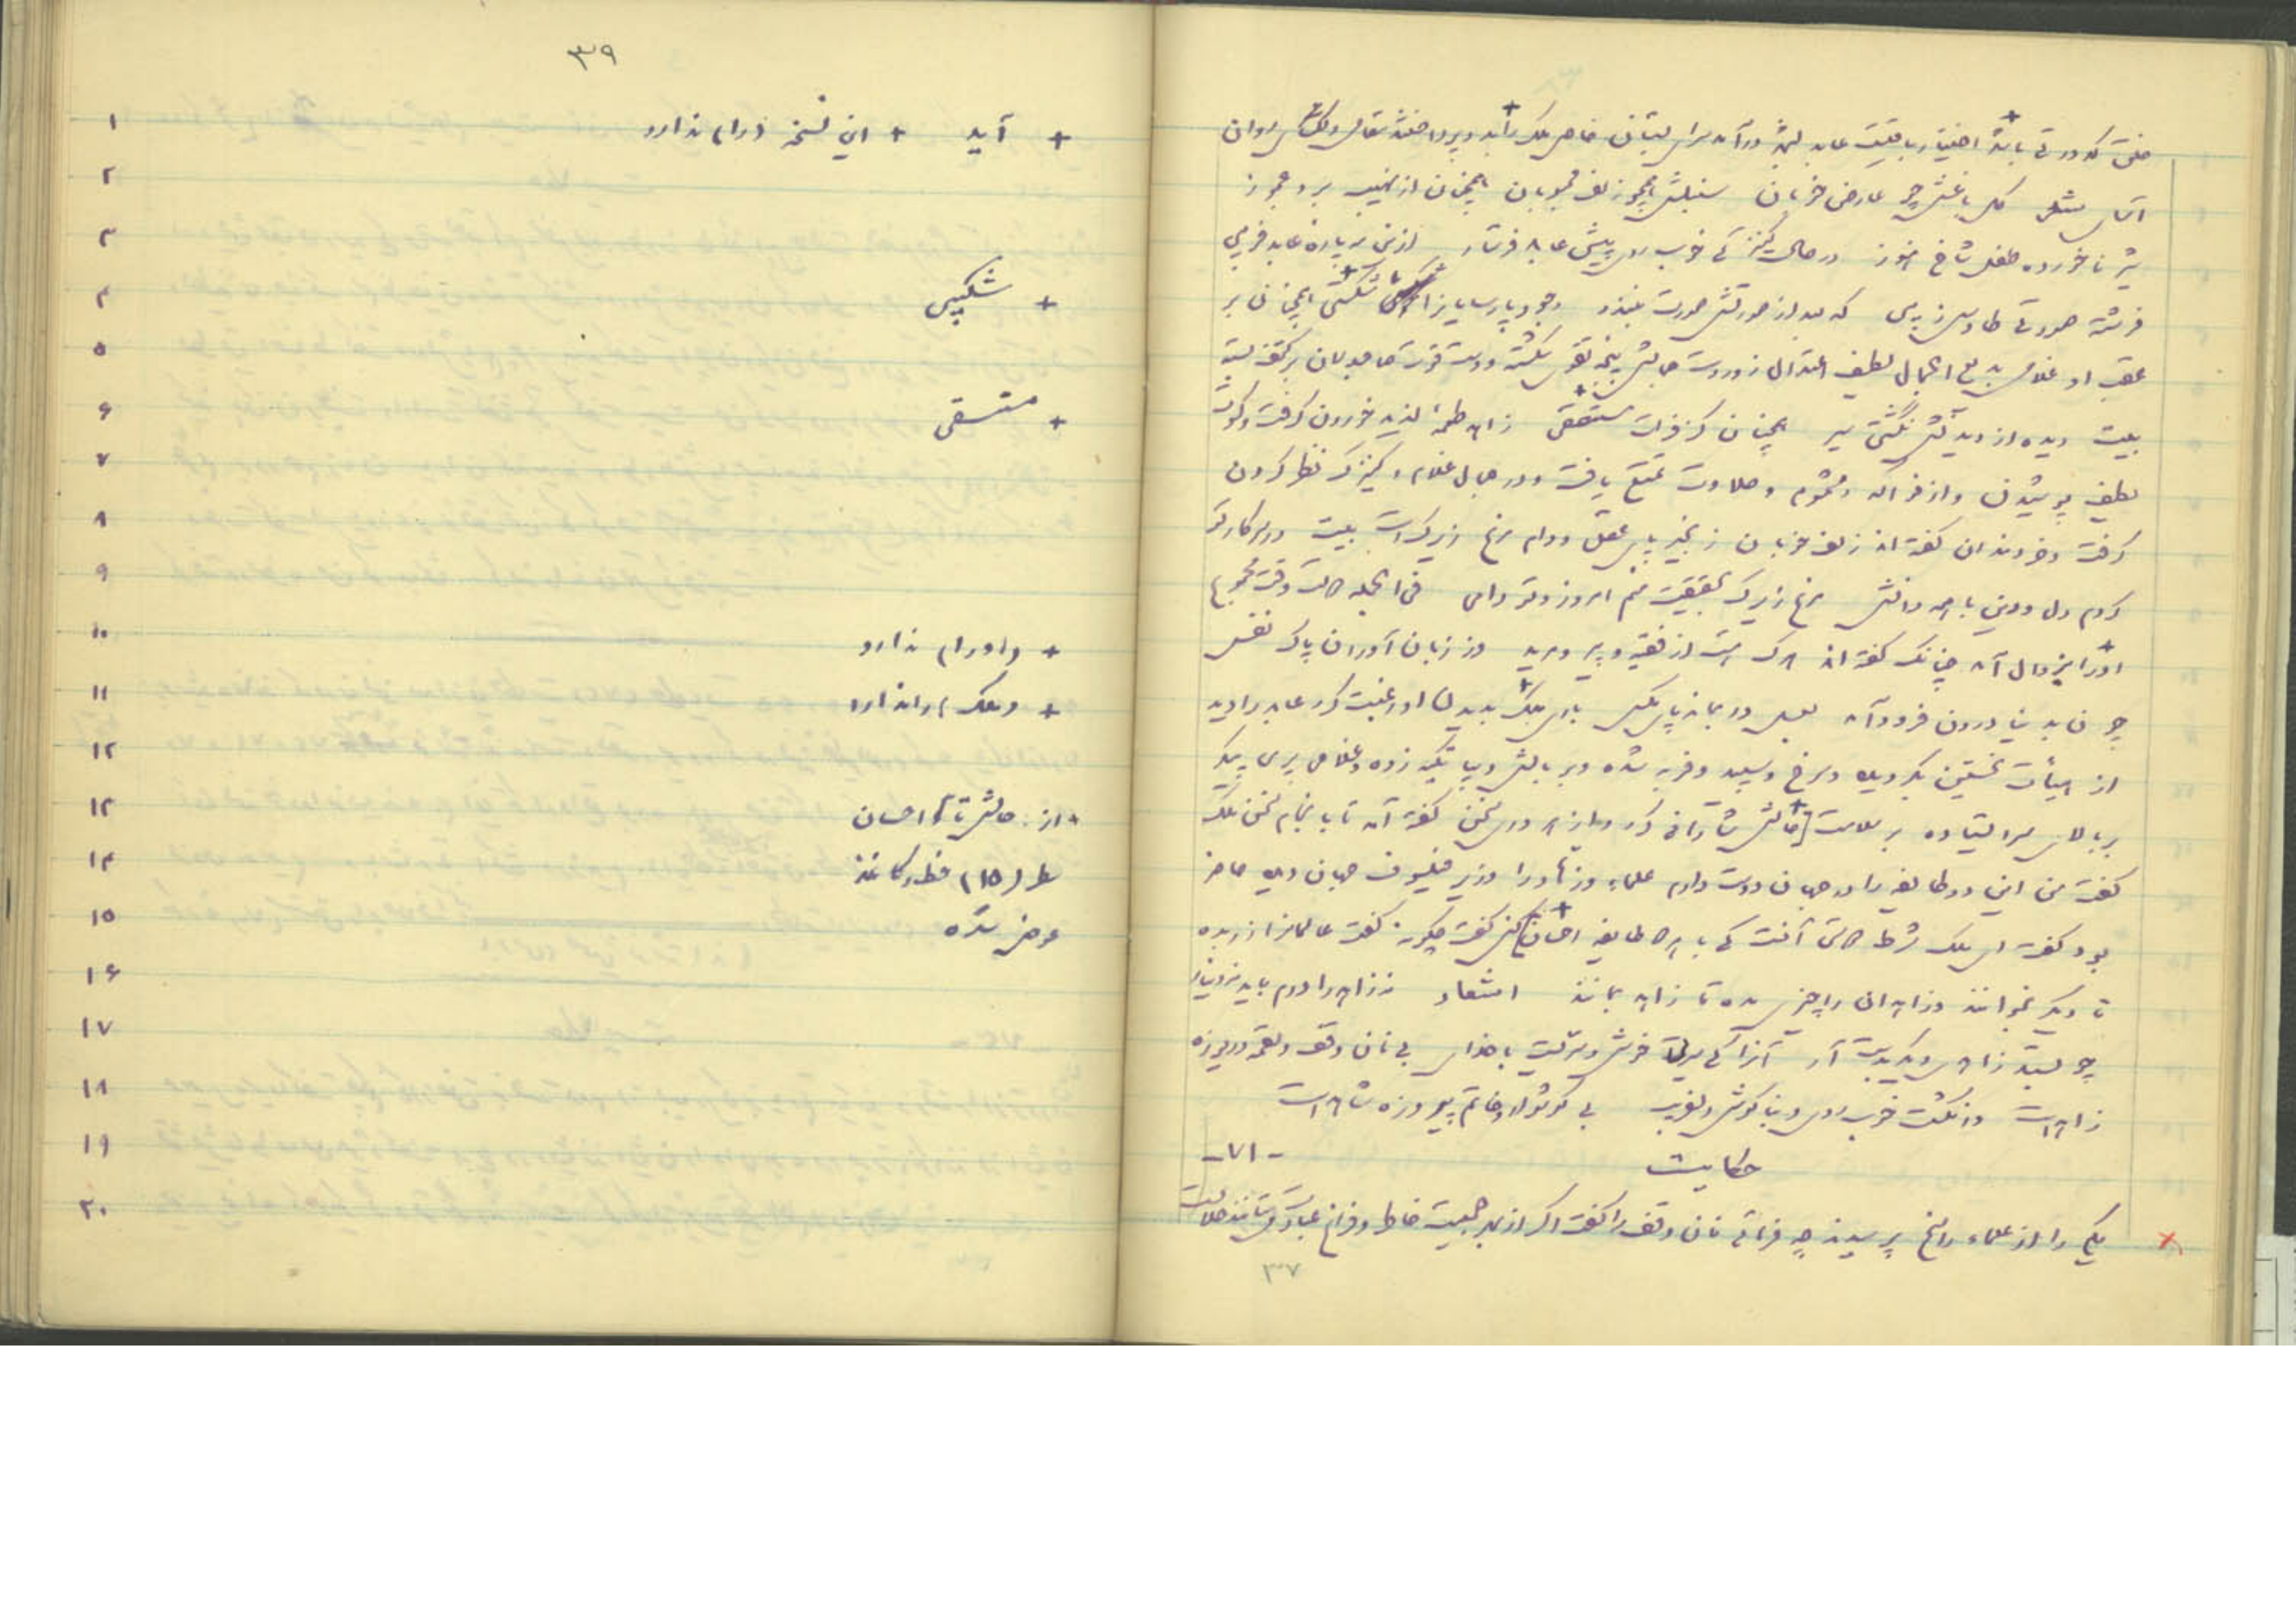 صفی کدورتی باشد اختیار باقیست عابد بشهر درآمد سرای بستان خاص ملک را بدو پرداختند مقامی دلگشای روان
آسای شعر گل باغش چو عارض خوبان سنبلش همچو زلف محبوبان همچنان از نهیب برد عجوز
شیر ناخورده طفل شاخ هنوز در حال کنیزکی خوب روی پیش عابد فرستاد ازین مه پارهٔ عابد فریبی
فرشته صورتی طاوس زیبی که بعد از صورتش صورت نبندد وجود پارسایان را شکیبی همچنان بر
عقب او غلامی بدیع الجمال لطیف اعتدال زور دست جمالش پنجهٔ تقوی شکسته و دست قوت صاحبدلان بر کتف بسته
بیت دیده از دیدنش نگشتی سیر همچنان کز فرات مستقی زاهد طعمهٔ لذیذ خوردن گرفت و کسوت
لطیف پوشیدن و از فواکه و مشموم و حلاوت تمتع یافت و در جمال غلام و کنیزک نظر کردن
گرفت و خردمندان گفته اند زلف خوبان زنجیر پای عقل و دام مرغ زیرک است بیت در سر کار تو
کردم دل و دین با همه دانش مرغ زیرک بحقیقت منم امروز و تو دامی فی الجمله حالت وقت مجموع
او را بزوال آمد چنانک گفته اند هرک هست از فقیه و پیر و مرید وز زبان آوران پاک نفس
چون بدنیا دون فرود آمد بعسل در بماند پای مگس باری ملک بدیدن او رغبت کرد عابد را دید
از هیأت نخستین بگردیده و سرخ و سپید و فربه شده و بر بالش دیبا تکیه زده و غلامی پری پیکر
بر بالای سر ایستاده بر سلامت حالش شادمانی کرد و از هر دری سخن گفتند تا بانجام سخن ملک
گفت من این دو طایفه را در جهان دوست دارم علما و زهاد را وزیر فیلسوف جهان دیده حاضر
بود گفت ای ملک شرط حالت آنست که با هر دو طایفه احسان کنی گفت چگونه گفت عالمانرا زر بده
تا دیگر بخوانند و زاهدان را چیزی مده تا زاهد بمانند اشعار نه زاهد را درم باید نه دینار
چو بستد زاهدی دیگر بدست آر آنرا که سیرتی خوش و سریست با خدای بی نان وقف و لقمهٔ دریوزه
زاهد است وانگشت خوب روی و بناگوش دلفریب بی گوشوار و خاتم پیروزه شاهد است
حکایت -۷۱-
یکی را از علماء راسخ پرسیدند چه فرمائی نان وقف را گفت اگر از بهر جمعیت خاطر و فراغ عبادت میستانند حلالست
۳۷
۳۹
۱ + آید + این نسخه (را) ندارد
۲
۳
۴ + شکیبی
۵
۶ + مستسقی
۷
۸
۹
۱۰ + (او را) ندارد
۱۱ + (ملک) را ندارد
۱۲
۱۳ + از: حالش تا احسان
۱۴ سطر (۱۵) خط و کاغذ
۱۵ عوض شده
۱۶
۱۷
۱۸
۱۹
۲۰